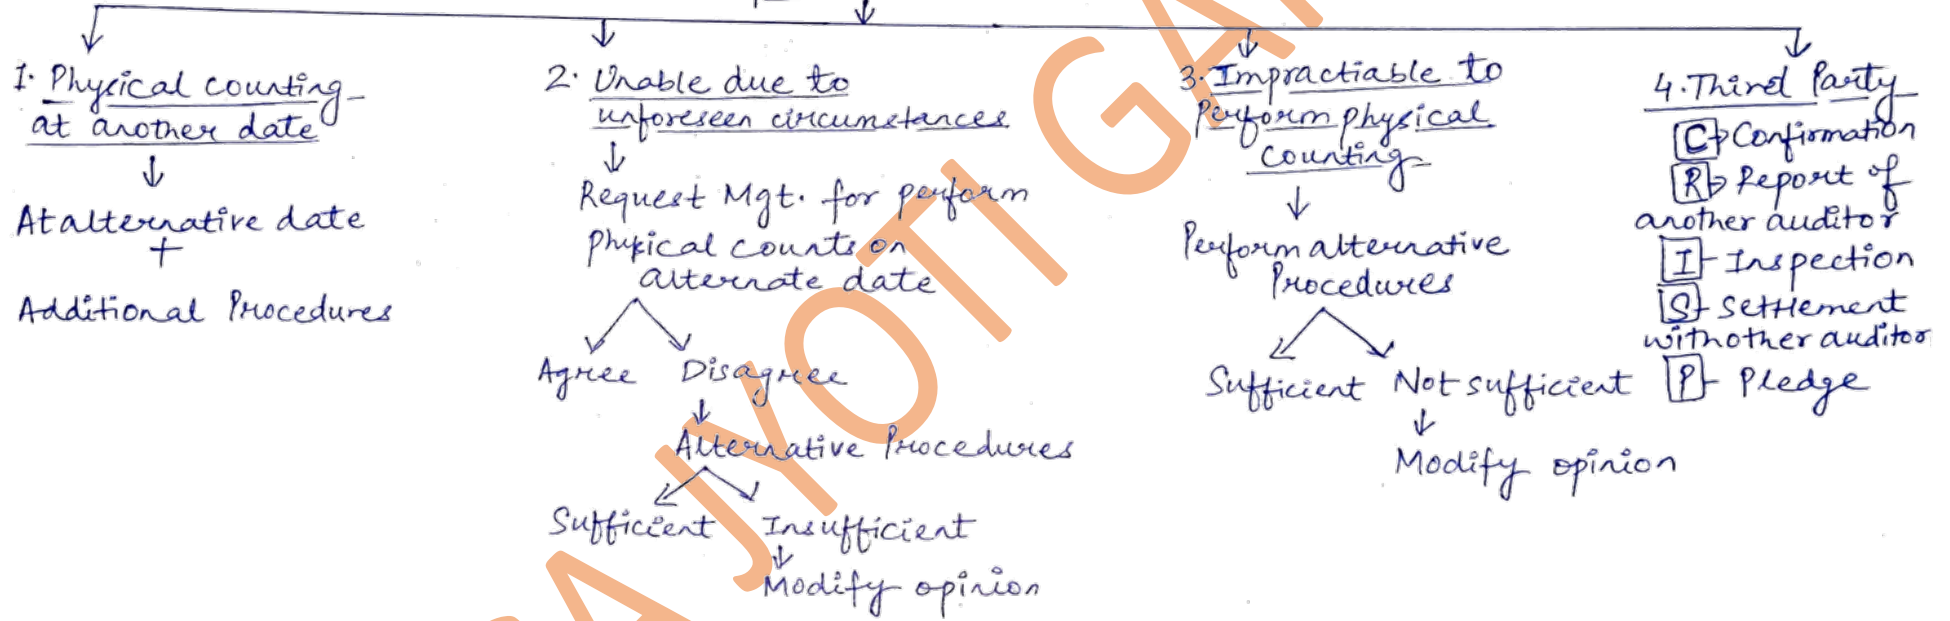 1. Physical counting
at another date
At alternative date
+
Additional Procedures
2. Unable due to
unforeseen circumstances
Request Mgt. for perform
Physical counts on
alternate date
Agree Disagree
Alternative Procedures
Sufficient Insufficient
Modify opinion
3. Impractiable to
Perform physical
counting
Perform alternative
Procedures
Sufficient Not sufficient
Modify opinion
4. Third Party
C → Confirmation
R → Report of
another auditor
I - Inspection
S - Settlement
with other auditor
P - Pledge
JYOTI GA